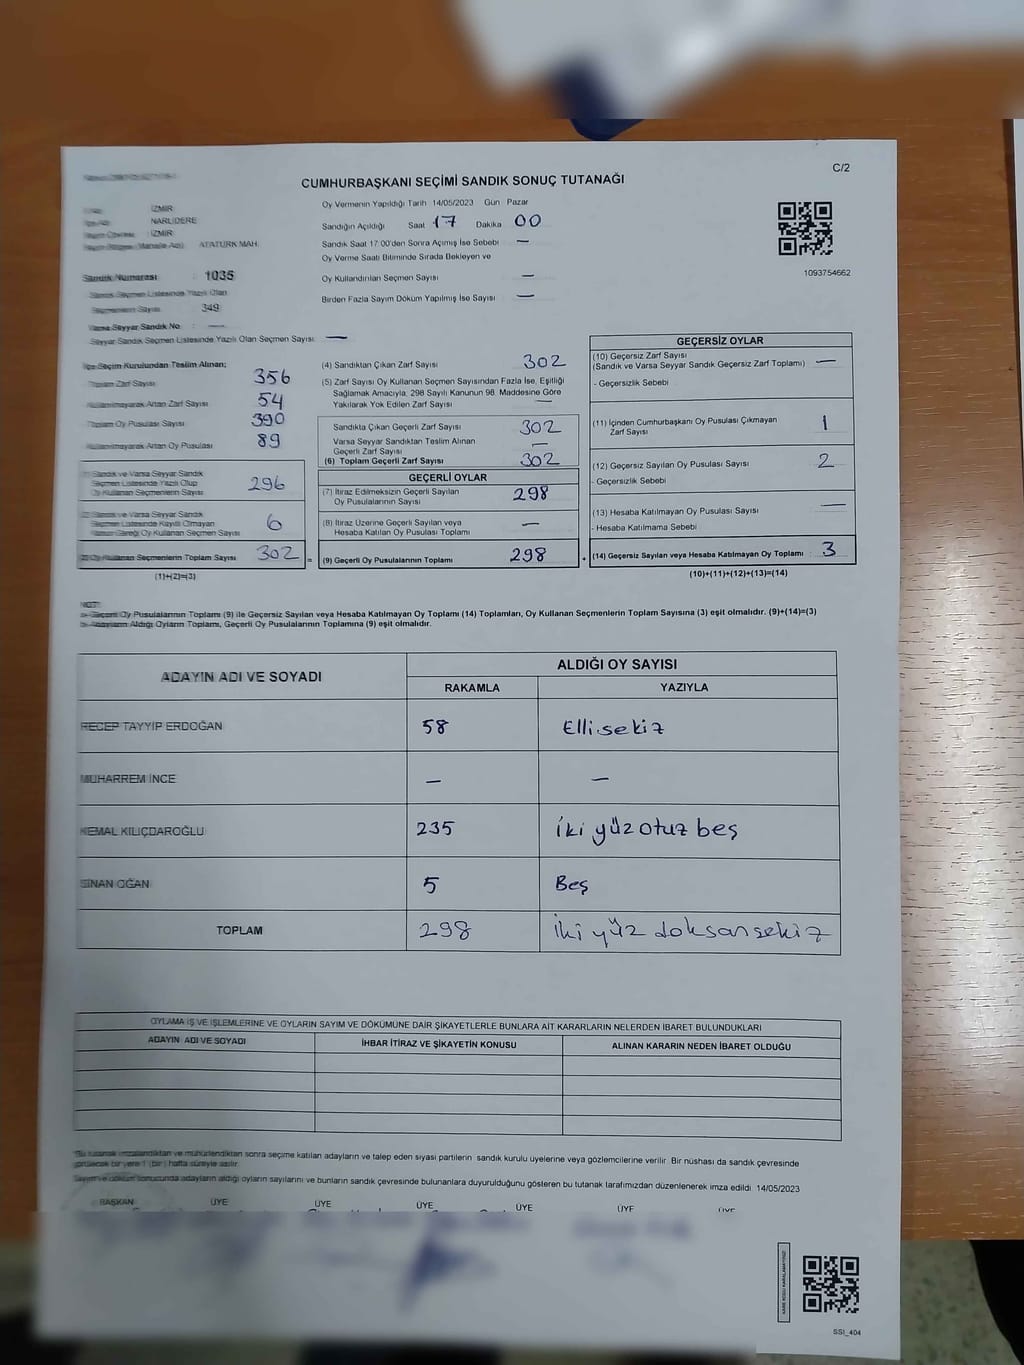 C/2
CUMHURBAŞKANI SEÇİMİ SANDIK SONUÇ TUTANAĞI
İZMİR
NARLIDERE
İZMİR
ATATÜRK MAH.
Sandık Numarası : 1035
Sandık Seçmen Listesinde Yazılı Olan
Seçmenlerin Sayısı 349
Varsa Seyyar Sandık No : —
Seyyar Sandık Seçmen Listesinde Yazılı Olan Seçmen Sayısı: —
Oy Vermenin Yapıldığı Tarih 14/05/2023 Gün Pazar
Sandığın Açıldığı Saat 17 Dakika 00
Sandık Saat 17.00'den Sonra Açımış İse Sebebi —
Oy Verme Saati Bitiminde Sırada Bekleyen ve
Oy Kullandırılan Seçmen Sayısı —
Birden Fazla Sayım Döküm Yapılmış İse Sayısı —
1093754662
İlçe Seçim Kurulundan Teslim Alınan;
Toplam Zarf Sayısı 356
Kullanılmayarak Artan Zarf Sayısı 54
Toplam Oy Pusulası Sayısı 390
Kullanılmayarak Artan Oy Pusulası 89
(1) Sandık ve Varsa Seyyar Sandık
Seçmen Listesinde Yazılı Olup
Oy Kullanan Seçmenlerin Sayısı 296
(2) Sandık ve Varsa Seyyar Sandık
Seçmen Listesinde Kayıtlı Olmayan
Kanun Gereği Oy Kullanan Seçmen Sayısı 6
(3) Oy Kullanan Seçmenlerin Toplam Sayısı 302 =
(1)+(2)=(3)
(4) Sandıktan Çıkan Zarf Sayısı 302
(5) Zarf Sayısı Oy Kullanan Seçmen Sayısından Fazla İse, Eşitliği
Sağlamak Amacıyla, 298 Sayılı Kanunun 98. Maddesine Göre
Yakılarak Yok Edilen Zarf Sayısı —
Sandıkta Çıkan Geçerli Zarf Sayısı 302
Varsa Seyyar Sandıktan Teslim Alınan
Geçerli Zarf Sayısı —
(6) Toplam Geçerli Zarf Sayısı 302
GEÇERLİ OYLAR
(7) İtiraz Edilmeksizin Geçerli Sayılan
Oy Pusulalarının Sayısı 298
(8) İtiraz Üzerine Geçerli Sayılan veya
Hesaba Katılan Oy Pusulası Toplamı —
(9) Geçerli Oy Pusulalarının Toplamı 298 +
GEÇERSİZ OYLAR
(10) Geçersiz Zarf Sayısı
(Sandık ve Varsa Seyyar Sandık Geçersiz Zarf Toplamı) —
- Geçersizlik Sebebi
(11) İçinden Cumhurbaşkanı Oy Pusulası Çıkmayan
Zarf Sayısı 1
(12) Geçersiz Sayılan Oy Pusulası Sayısı 2
- Geçersizlik Sebebi
(13) Hesaba Katılmayan Oy Pusulası Sayısı —
- Hesaba Katılmama Sebebi
(14) Geçersiz Sayılan veya Hesaba Katılmayan Oy Toplamı : 3
(10)+(11)+(12)+(13)=(14)
NOT:
a- Geçerli Oy Pusulalarının Toplamı (9) ile Geçersiz Sayılan veya Hesaba Katılmayan Oy Toplamı (14) Toplamları, Oy Kullanan Seçmenlerin Toplam Sayısına (3) eşit olmalıdır. (9)+(14)=(3)
b- Adayların Aldığı Oyların Toplamı, Geçerli Oy Pusulalarının Toplamına (9) eşit olmalıdır.
ADAYIN ADI VE SOYADI ALDIĞI OY SAYISI
RAKAMLA YAZIYLA
RECEP TAYYİP ERDOĞAN 58 Elli sekiz
MUHARREM İNCE — —
KEMAL KILIÇDAROĞLU 235 İki yüz otuz beş
SİNAN OĞAN 5 Beş
TOPLAM 298 İki yüz doksan sekiz
OYLAMA İŞ VE İŞLEMLERİNE VE OYLARIN SAYIM VE DÖKÜMÜNE DAİR ŞİKAYETLERLE BUNLARA AİT KARARLARIN NELERDEN İBARET BULUNDUKLARI
ADAYIN ADI VE SOYADI İHBAR İTİRAZ VE ŞİKAYETİN KONUSU ALINAN KARARIN NEDEN İBARET OLDUĞU
"Bu tutanak imzalandıktan ve mühürlendikten sonra seçime katılan adayların ve talep eden siyasi partilerin sandık kurulu üyelerine veya gözlemcilerine verilir. Bir nüshası da sandık çevresinde
görülecek bir yere 1 (bir) hafta süreyle asılır.
Sayım ve döküm sonucunda adayların aldığı oyların sayılarını ve bunların sandık çevresinde bulunanlara duyurulduğunu gösteren bu tutanak tarafımızdan düzenlenerek imza edildi. 14/05/2023
BAŞKAN ÜYE ÜYE ÜYE ÜYE ÜYE ÜYE
SSI_404